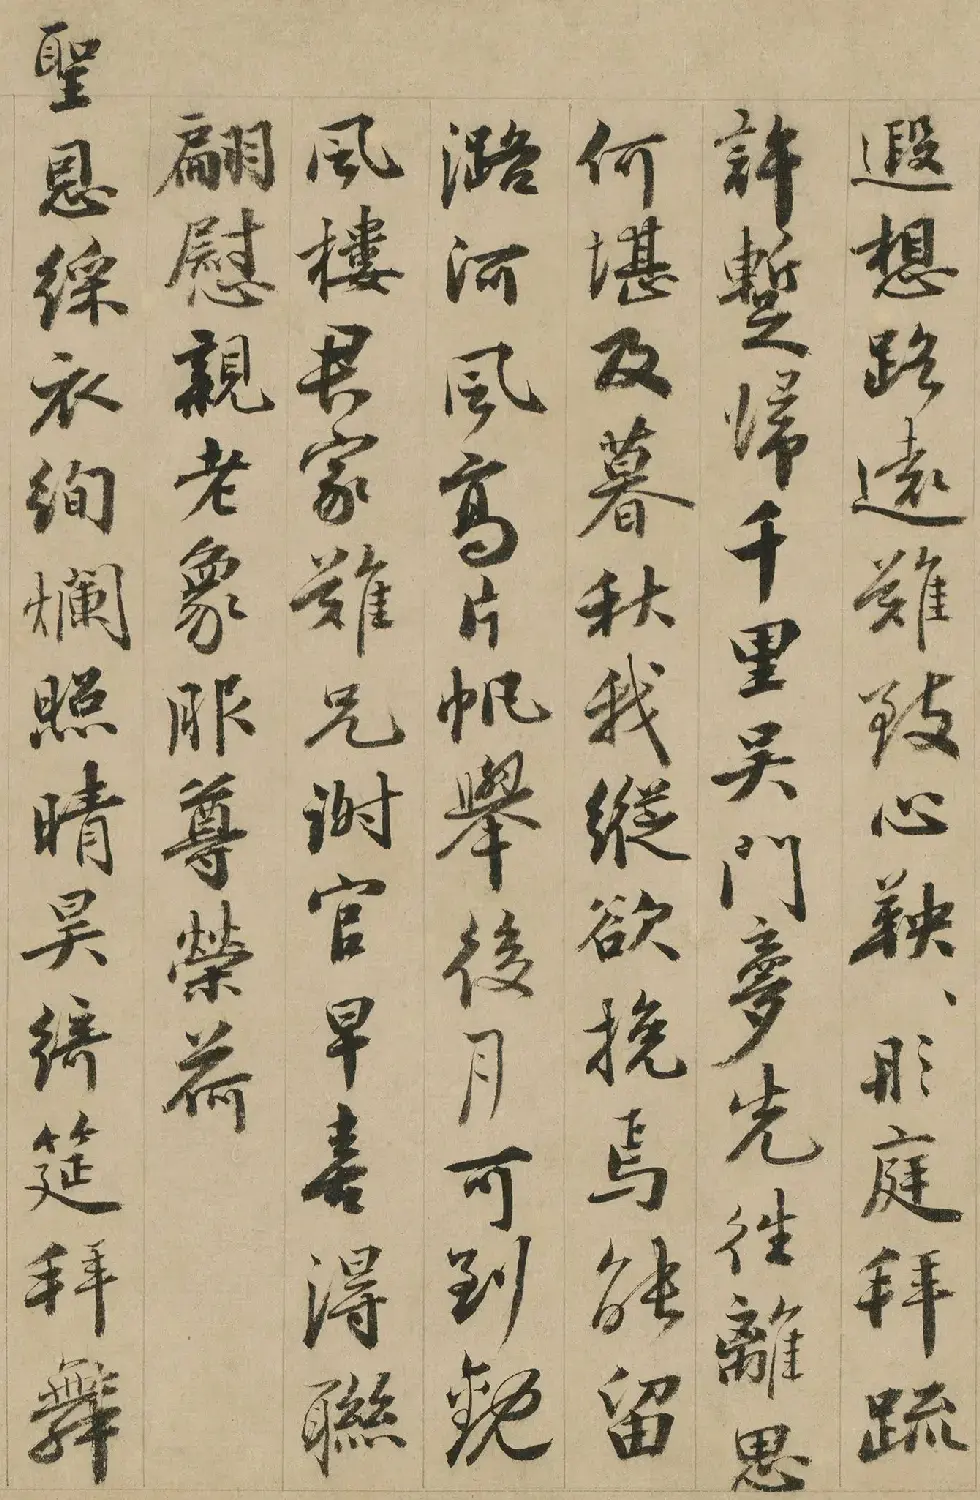 遐想路遠難致心鞅、彤庭拜疏
許蹔歸千里吳門夢先往離思
何堪及暮秋我縱欲挽焉能留
潞河風高片帆舉後月可到觀
風樓君家難兄謝官早喜得聯
翩慰親老象服尊榮荷
聖恩綵衣絢爛照晴昊綺筵拜舞